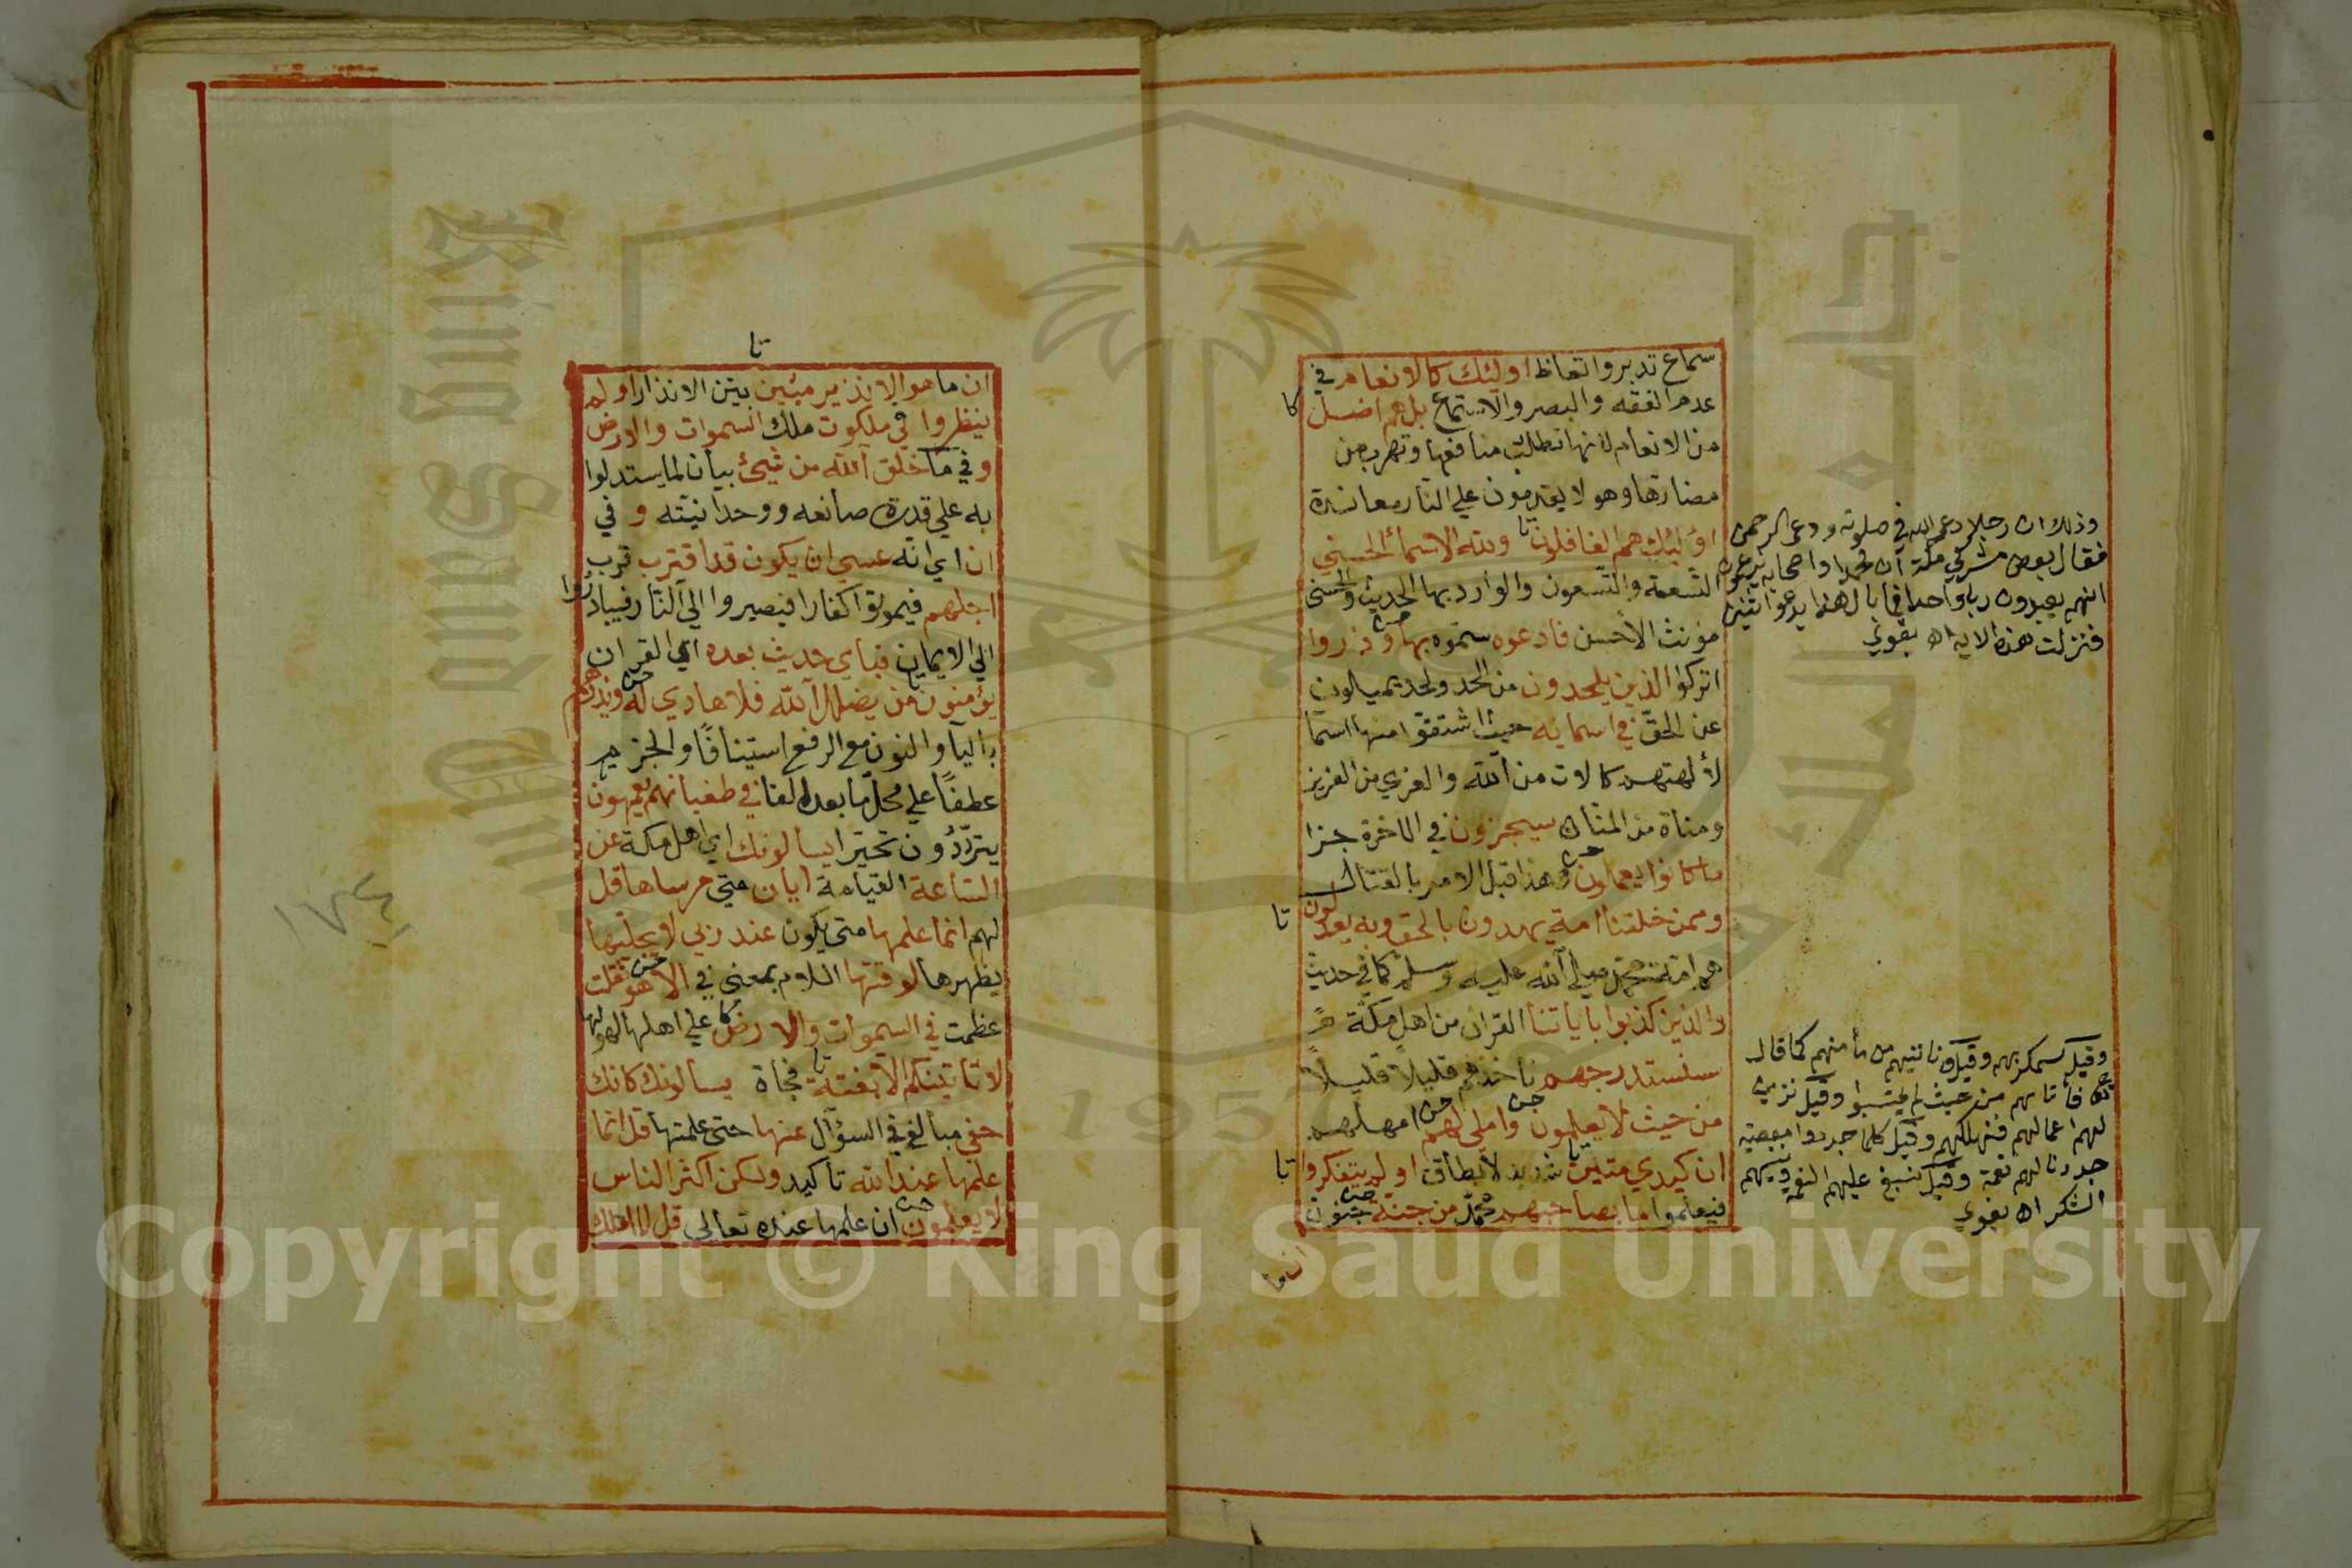 سماع تدبر واتعاظ اولئك كالانعام في
عدم الفقه والبصر والاستماع بل هم اضل
كا
من الانعام لانها تطلب منافعها وتهرب من
مضارها وهو لا يقدمون علي النار معاندة
اولئك هم الغافلون ولله الاسماء الحسني
تا
التسعة والتسعون والوارد بها الحديث والحسني
مؤنث الاحسن فادعوه سموه بها وذروا
حسن
اتركوا الذين يلحدون من الحد ولحد يميلون
عن الحق في اسمائه حيث اشتقوا منها اسما
لألهتهم كاللات من الله والعزي من العزيز
ومناة من المنان سيجزون في الاخرة جزا
ما كانوا يعملون وهذا قبل الامر بالقتال
حسن
وممن خلقنا امة يهدون بالحق وبه يعدلون
تا
هم امة محمد صلي الله عليه وسلم كما في حديث
والذين كذبوا باياتنا القران من اهل مكة
سنستدرجهم ناخذهم قليلا قليلا
من حيث لا يعلمون واملي لهم امهلهم
حسن
حسن
ان كيدي متين شديد لا يطاق اولم يتفكروا
تا
تا
فيعلموا ما بصاحبهم محمد من جنة جنون
حسن
ان ما
وذلك ان رجلا دعى الله في صلوته ودعى الرحمن
فقال بعض مشركي مكة ان محمدا واصحابه يزعمون
انهم يعبدون ربا واحدا فما بال هذا يدعوا اثنين
فنزلت هذه الايه اه بغوي
وقيل سمكر بهم وقيل ناتيهم من مأمنهم كما قال
تع فاتاهم من حيث لم يحتسبوا وقيل نزين
لهم اعمالهم فنهلكهم وقيل كلما جددوا معصية
جددنا لهم نعمة وقيل نسبغ عليهم النعم وننسيهم
الشكر اه بغوي
تا
ان ما هو الا نذير مبين بين الانذار اولم
ينظروا في ملكوت ملك السموات والارض
وفي ما خلق الله من شيئ بيان لما يستدلوا
به علي قدرة صانعه ووحدانيته و في
ان اي انه عسي ان يكون قد اقترب قرب
اجلهم فيموتوا كفارا فيصيروا الي النار فيبادروا
الي الايمان فباي حديث بعده اي القران
يؤمنون من يضلل الله فلا هادي له ويذرهم
تا
حسن
باليا والنون مع الرفع استينافا والجزم
عطفا علي محل ما بعد الفا في طغيانهم يعمهون
يترددون تحيرا يسالونك اي اهل مكة عن
الساعة القيامة ايان متي مرساها قل
لهم انما علمها متي يكون عند ربي لا يجليها
يظهرها لوقتها اللام بمعني في الا هو ثقلت
حسن
عظمت في السموات والارض علي اهلها لهولها
كا
لا تاتيكم الا بغتة فجاة يسالونك كانك
تا
حفي مبالغ في السؤال عنها حتي علمتها قل انما
علمها عند الله تاكيد ولكن اكثر الناس
لا يعلمون ان علمها عنده تعالي قل لا املك
حسن
١٧٤
1957
Copyright © King Saud University